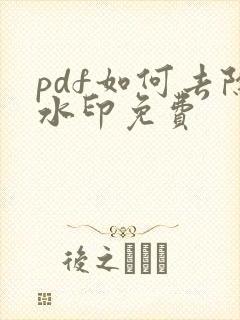 pdf如何去除
水印免费
後之